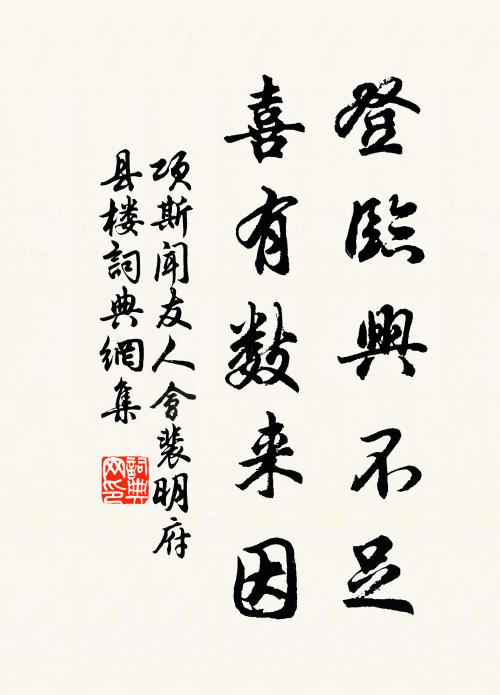 登臨興不足
喜有数来因
项斯闻友人会裴明府
县楼詞典網集
詞典
网印